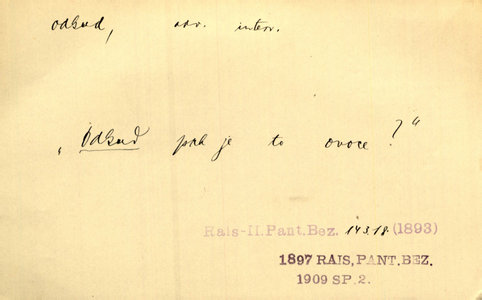 odkud, adv. interr.
„Odkud pak je to ovoce?“
Rais-II.Pant.Bez. 143.18. (1893)
1897 RAIS, PANT. BEZ.
1909 SP. 2.